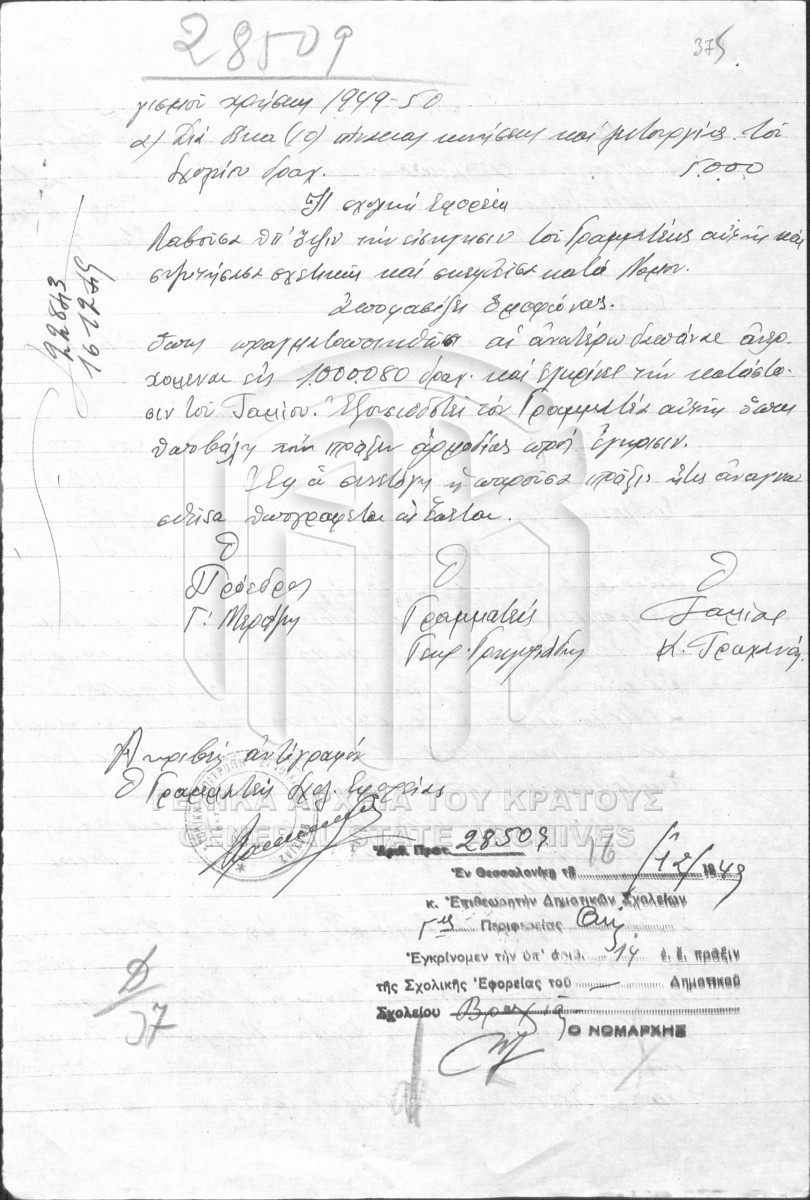 28509
375
γισμού χρήσεως 1949-50
α) Διά δέκα (10) πίνακας κινήσεως και λειτουργίας του
Σχολείου δραχ. 5.000
Η σχολική Εφορεία
Λαβούσα υπ' όψιν την εισήγησιν του Γραμματέως αυτής και
συζητήσασα σχετικώς και σκεφθείσα κατά Νόμον.
Αποφασίζει Ομοφώνως.
Όπως πραγματοποιηθώσι αι ανωτέρω δαπάναι ανερ-
χόμεναι εις 1.000.080 δραχ. και εγκρίνει την κατάστα-
σιν του Ταμίου. Εξουσιοδοτεί τον Γραμματέα αυτής όπως
υποβάλη την πράξιν αρμοδίως προς έγκρισιν.
Εφ' ω συνετάγη η παρούσα πράξις ήτις αναγνω-
σθείσα υπογράφεται ως έπεται.
22843
16-12-49
Ο
Πρόεδρος
Ο
Γραμματεύς
Γεωρ.
Ο
Ταμίας
Κ. Τραχανάς
Ακριβές αντίγραφον
Ο Γραμματεύς Σχολ. Εφορείας
ΓΕΝΙΚΑ ΑΡΧΕΙΑ ΤΟΥ ΚΡΑΤΟΥΣ
GENERAL STATE ARCHIVES
Ἀριθ. Πρωτ. 28509
Ἐν Θεσσαλονίκῃ τῇ 16/12/1949
κ. Ἐπιθεωρητὴν Δημοτικῶν Σχολείων
Γης Περιφερείας Θης
Ἐγκρίνομεν τὴν ὑπ' ἀριθ. 14 ἐ. ἔ. πρᾶξιν
τῆς Σχολικῆς Ἐφορείας τοῦ — Δημοτικοῦ
Σχολείου Βραχιάς
Ο ΝΟΜΑΡΧΗΣ
Δ/37